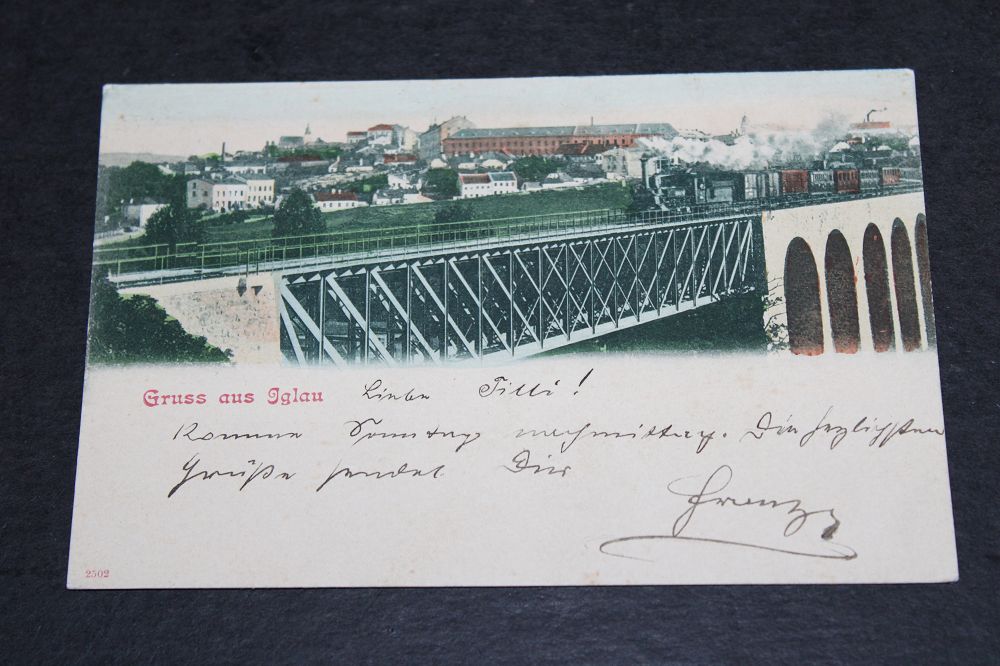 Gruss aus Iglau Liebe Tilli!
Komme Sonntag nachmittag. Die herzlichsten
Grüße sendet Dir
Franz
2502